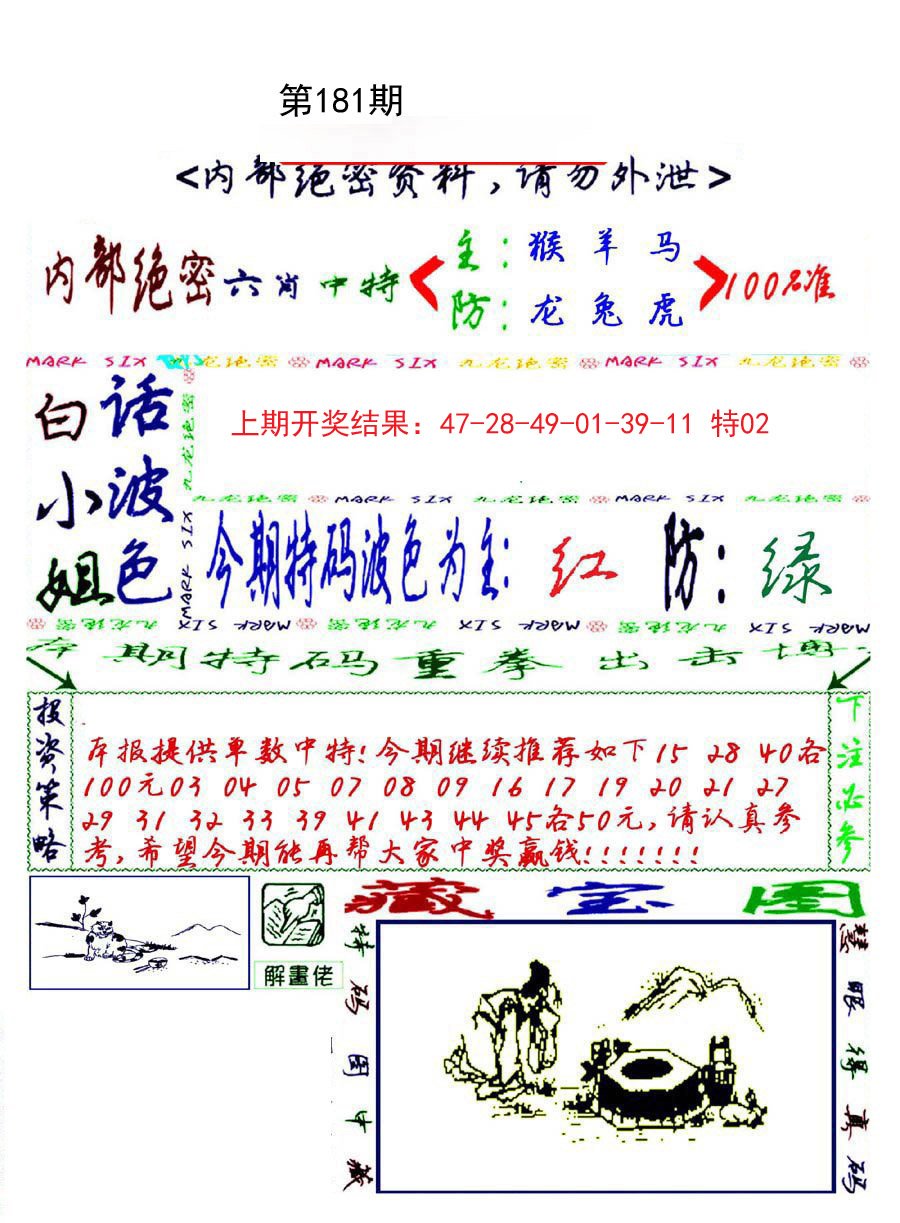 第181期
<内部绝密资料,请勿外泄>
内部绝密六肖中特
主:猴羊马
防:龙兔虎
100%准
MARK SIX 九龙绝密 MARK SIX 九龙绝密 MARK SIX 九龙绝密
九龙绝密
MARK SIX
白话
小波
姐色
上期开奖结果：47-28-49-01-39-11 特02
九龙绝密 MARK SIX 九龙绝密 MARK SIX 九龙绝密
今期特码波色为主:红 防:绿
九龙绝密 MARK SIX 九龙绝密 MARK SIX 九龙绝密 MARK SIX
本期特码重拳出击博
投资策略
本报提供单数中特!今期继续推荐如下15 28 40各
100元03 04 05 07 08 09 16 17 19 20 21 27
29 31 32 33 39 41 43 44 45各50元,请认真参
考,希望今期能再帮大家中奖赢钱!!!!!!!
下注必参
解畫佬
藏宝图
特码图中藏
慧眼得真码